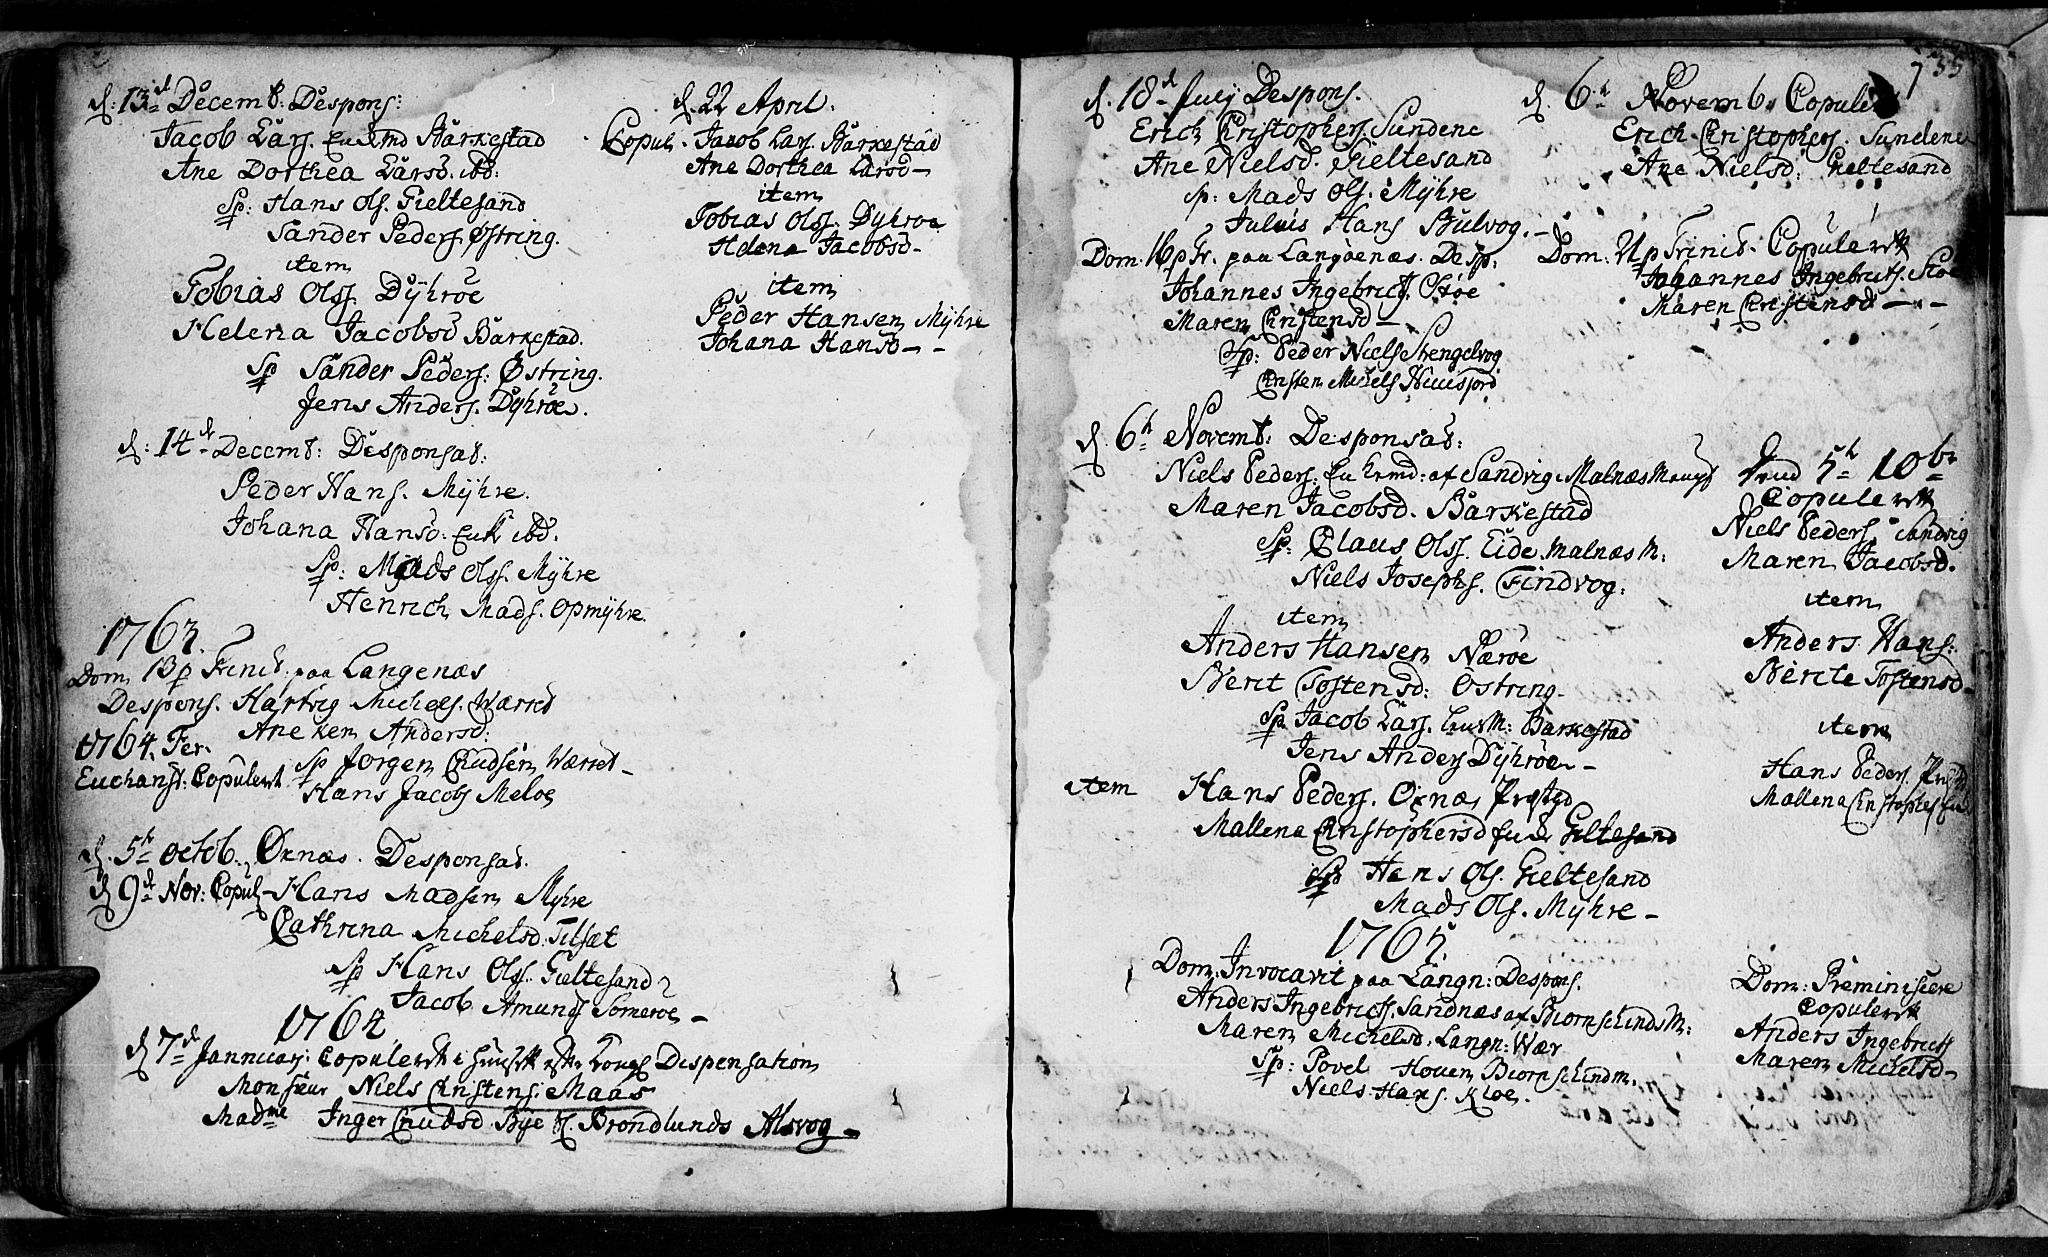 d. 13d Decemb: Despons:
Jacob Lars. Enkemd Barkestad
Ane Dorthea Larsd. ibd:
Sp: Hans Ols. Gieltesand
Sander Peders. Østring.
item
Tobias Olss. Dyhrøe
Helena Jacobsd Barkestad.
Sp Sander Peders: Østring.
Jens Anders. Dyhrøe.
d: 14d Decemb: Desponsat:
Peder Hans. Myhre.
Johana Hansd: Enk ibd.
Sp: Mads Olss. Myhre
Henrich Mads. Opmyhre.
1763.
Dom 13 p Trinit. paa Langenæs
Despons. Hartvig Michels. Wærret
Aneken Andersd:
1764. Fer.
Sp Jørgen Knudsen Wærret
Eucharist. Copulert
Hans Jacobs Meloe
d. 5t octob. Øxnæs. Desponsat.
d 9d Nov: Copul. Hans Madsen Myhre
Cathrina Michelsd: Tilsæt
Sp Hans Olss. Gieltesand
Jacob Amunds Someroe
1764
d 7d Jannuar: Copulert i Huuset efter Kongl Dispensation
Monsieur Niels Christens: Maas
Madme Inger Knudsd. Bye Sl. Brondlunds Alsvog
d. 22 April.
Copul. Jacob Lars. Barkestad
Ane Dorthea Larsd
item
Tobias Olss. Dyhroe
Helena Jacobsd
item
Peder Hansen Myhre
Johana Hansd
755
d. 18d July Despons.
Erich Christophers. Sundene
Ane Nielsd. Gieltesand
Sp: Mads Ols. Myhre
Julius Hans Bulvog.
Dom. 16 p Tr. paa Langøenæs. Desp:
Johannes Ingebrict. Skoe
Maren Christensd
Sp: Peder Niels Strengelvog
Christen Michels Huusjord
d. 6t Novemb: Desponsat:
Niels Peders: Enkemd: af Sandvig Malnæs Menigh
Maren Jacobsd. Barkestad
Sp: Claus Olss. Eide Malnæs M:
Niels Josephs. Findvog:
item
Anders Hansen Næroe
Berit Tostensd: Østring
Sp Jacob Lars. Barkestad
Jens Anders Dyhrøe
item Hans Peders. Øxnæs Præstgd
Mallena Christophersd Gieltesand
Sp Hans Ols. Gieltesand
Mads Ols. Myhre
1765.
Dom. Invocavit paa Langn: Despons.
Anders Ingebrictss. Sandnæs af Biornschinds M:
Maren Michelsd. Langn: Wær
Sp: Povel Hoven Biornschindm.
Niels Hans. Kloe.
d. 6t Novemb. Copulert
Erich Christophers. Sundene
Ane Nielsd: Gieltesand
Dom: 21 p Trinit. Copulert
Johannes Ingebricts. Skoe
Maren Christensd
Dend 5t 10br
Copulert
Niels Peders. Sandvig
Maren Jacobsd.
item
Anders Hans:
Berite Tostensd
item
Hans Peders.
Mallena Christophersd
Dom: Reminiscere
Copulert
Anders Ingebrictss
Maren Michelsd